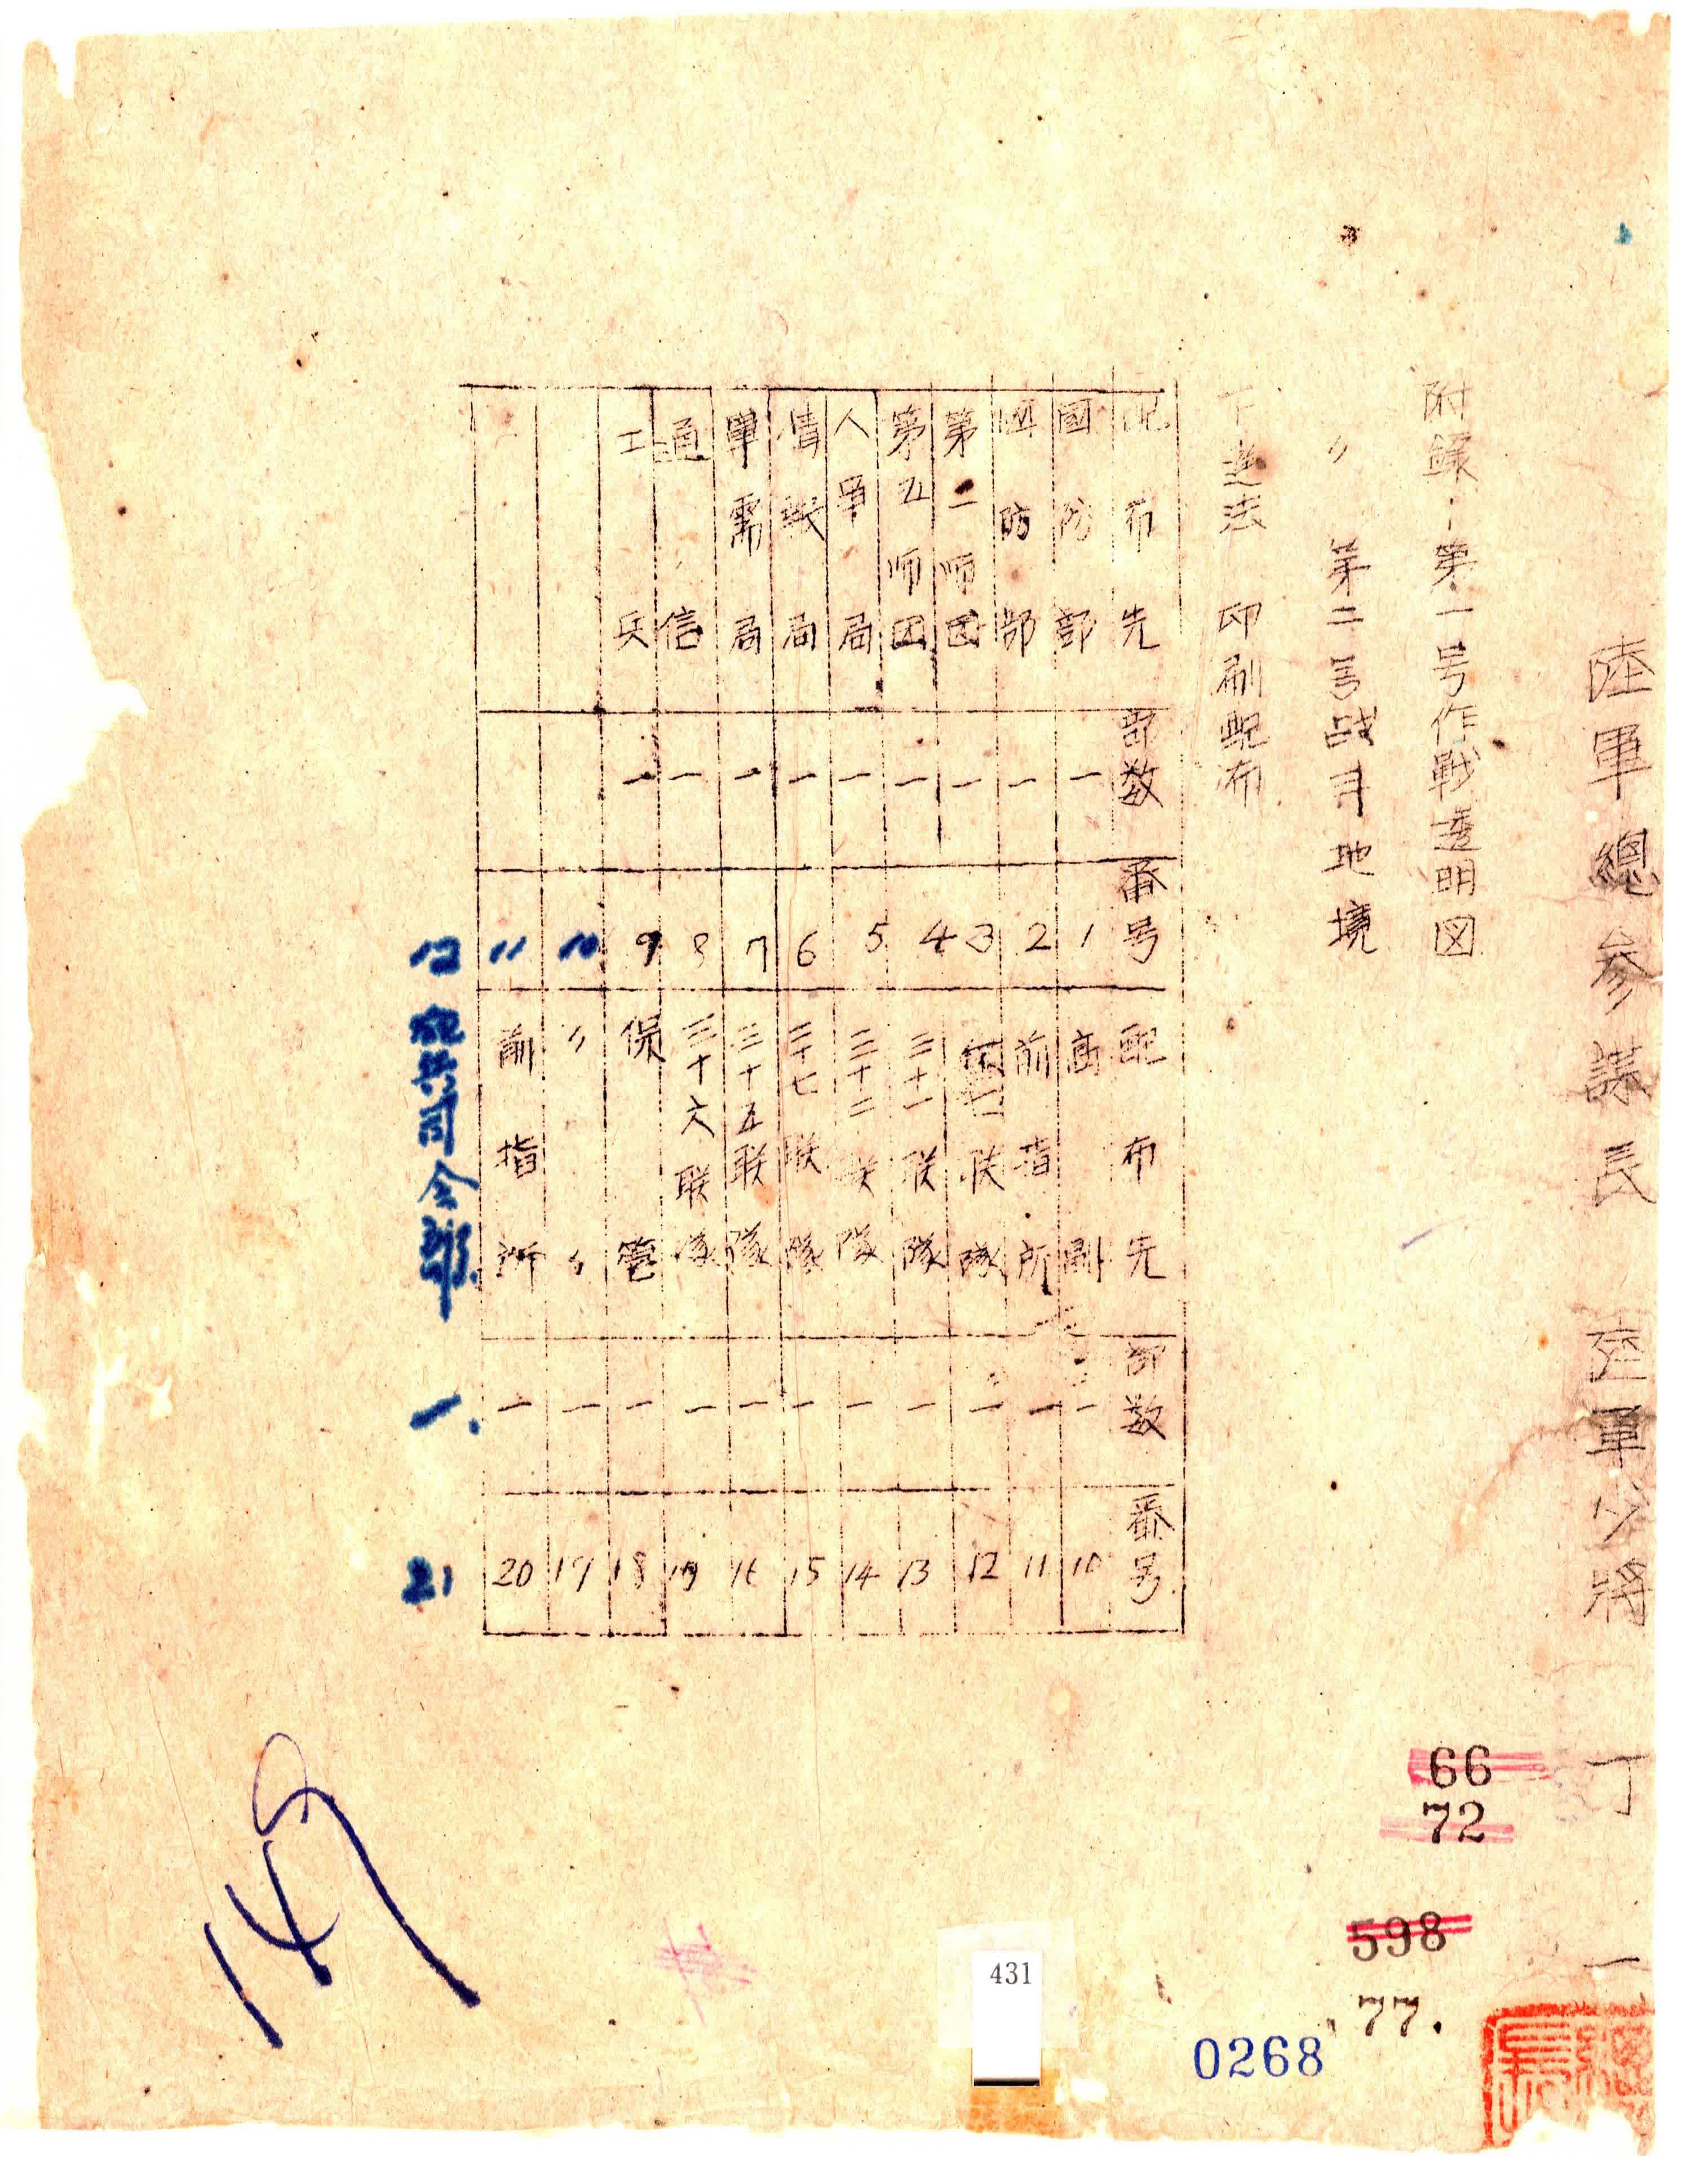 陸軍總參謀長 陸軍少將 丁 一
附錄:第一号作戰透明図
〃 第二号战斗地境
下達法 印刷配布
配布先 部数 番号 配布先 部数 番号
國防部 一 1 高 副 一 10
國防部 一 2 前指所 一 11
第二师团 一 3 联隊 一 12
第五师团 一 4 三十一联隊 一 13
人事局 一 5 三十二联隊 一 14
情报局 一 6 三十七联隊 一 15
軍需局 一 7 三十五联隊 一 16
通信 一 8 三十六联隊 一
工兵 一 9 保管 一 18
10 〃 〃 一 19
11 前指所 一 20
12 砲兵司令部 一. 21
149
66
72
598
77.
431
0268